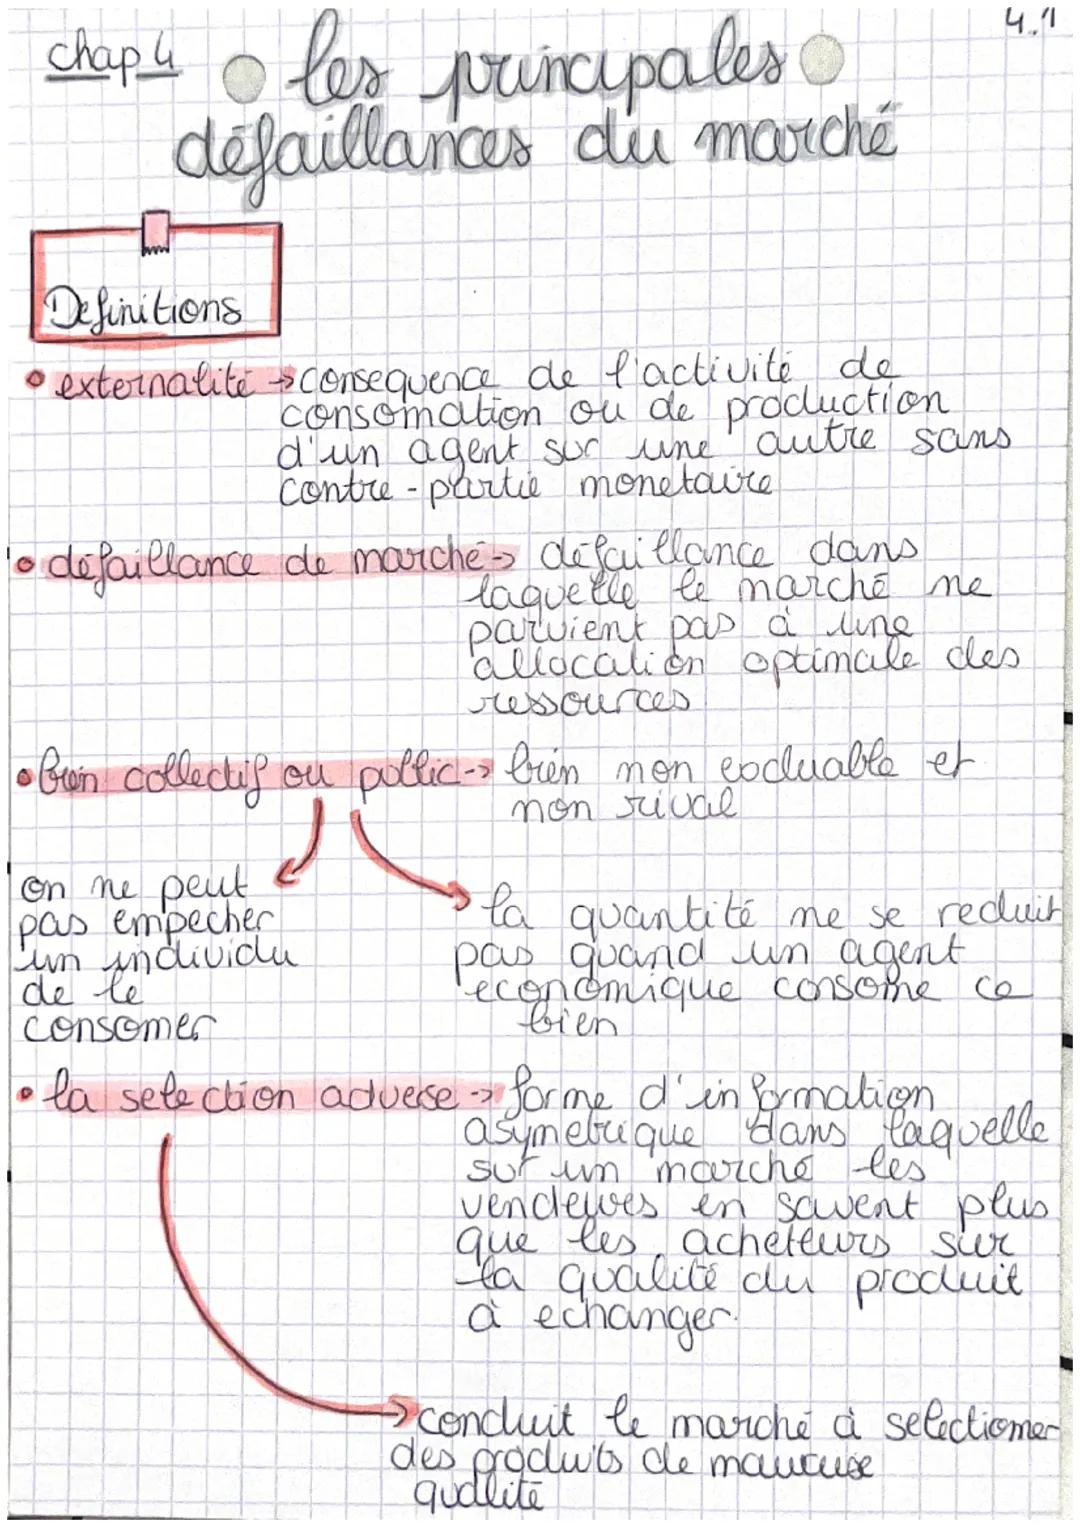 4.1
chap 4
les principales
défaillances du marché
Definitions
externalité → consequence de l'activité de
consomation ou de production
d'un agent sur une autre sans
contre-partie monetaire
défaillance de marché → défaillance dans
laquelle le marché ne
parvient pas à une
allocation optimale des
ressources
bien collectif ou public → bien non excluable et
non rival
on ne peut
pas empecher
un individu
de le
consomer
la quantité ne se reduit
pas quand un agent
economique consome ce
bien
la selection adverse → forme d'information
asymetrique dans laquelle
sur un marché les
vendeures en savent plus
que les acheteurs sur
la qualité du produit
à echanger.
conduit le marché à selectionner
des produits de mauvaise
qualité